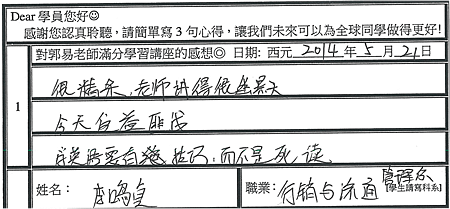 Dear 學員您好☺
感謝您認真聆聽，請簡單寫 3 句心得，讓我們未來可以為全球同學做得更好!
對郭易老師滿分學習講座的感想◎ 日期: 西元 2014 年 5 月 21 日
1
很精采,老师讲得很
今天白
需要 技巧,而不是死读.
姓名: 唐鳴
職業: 行销与流通 [學生請寫科系]